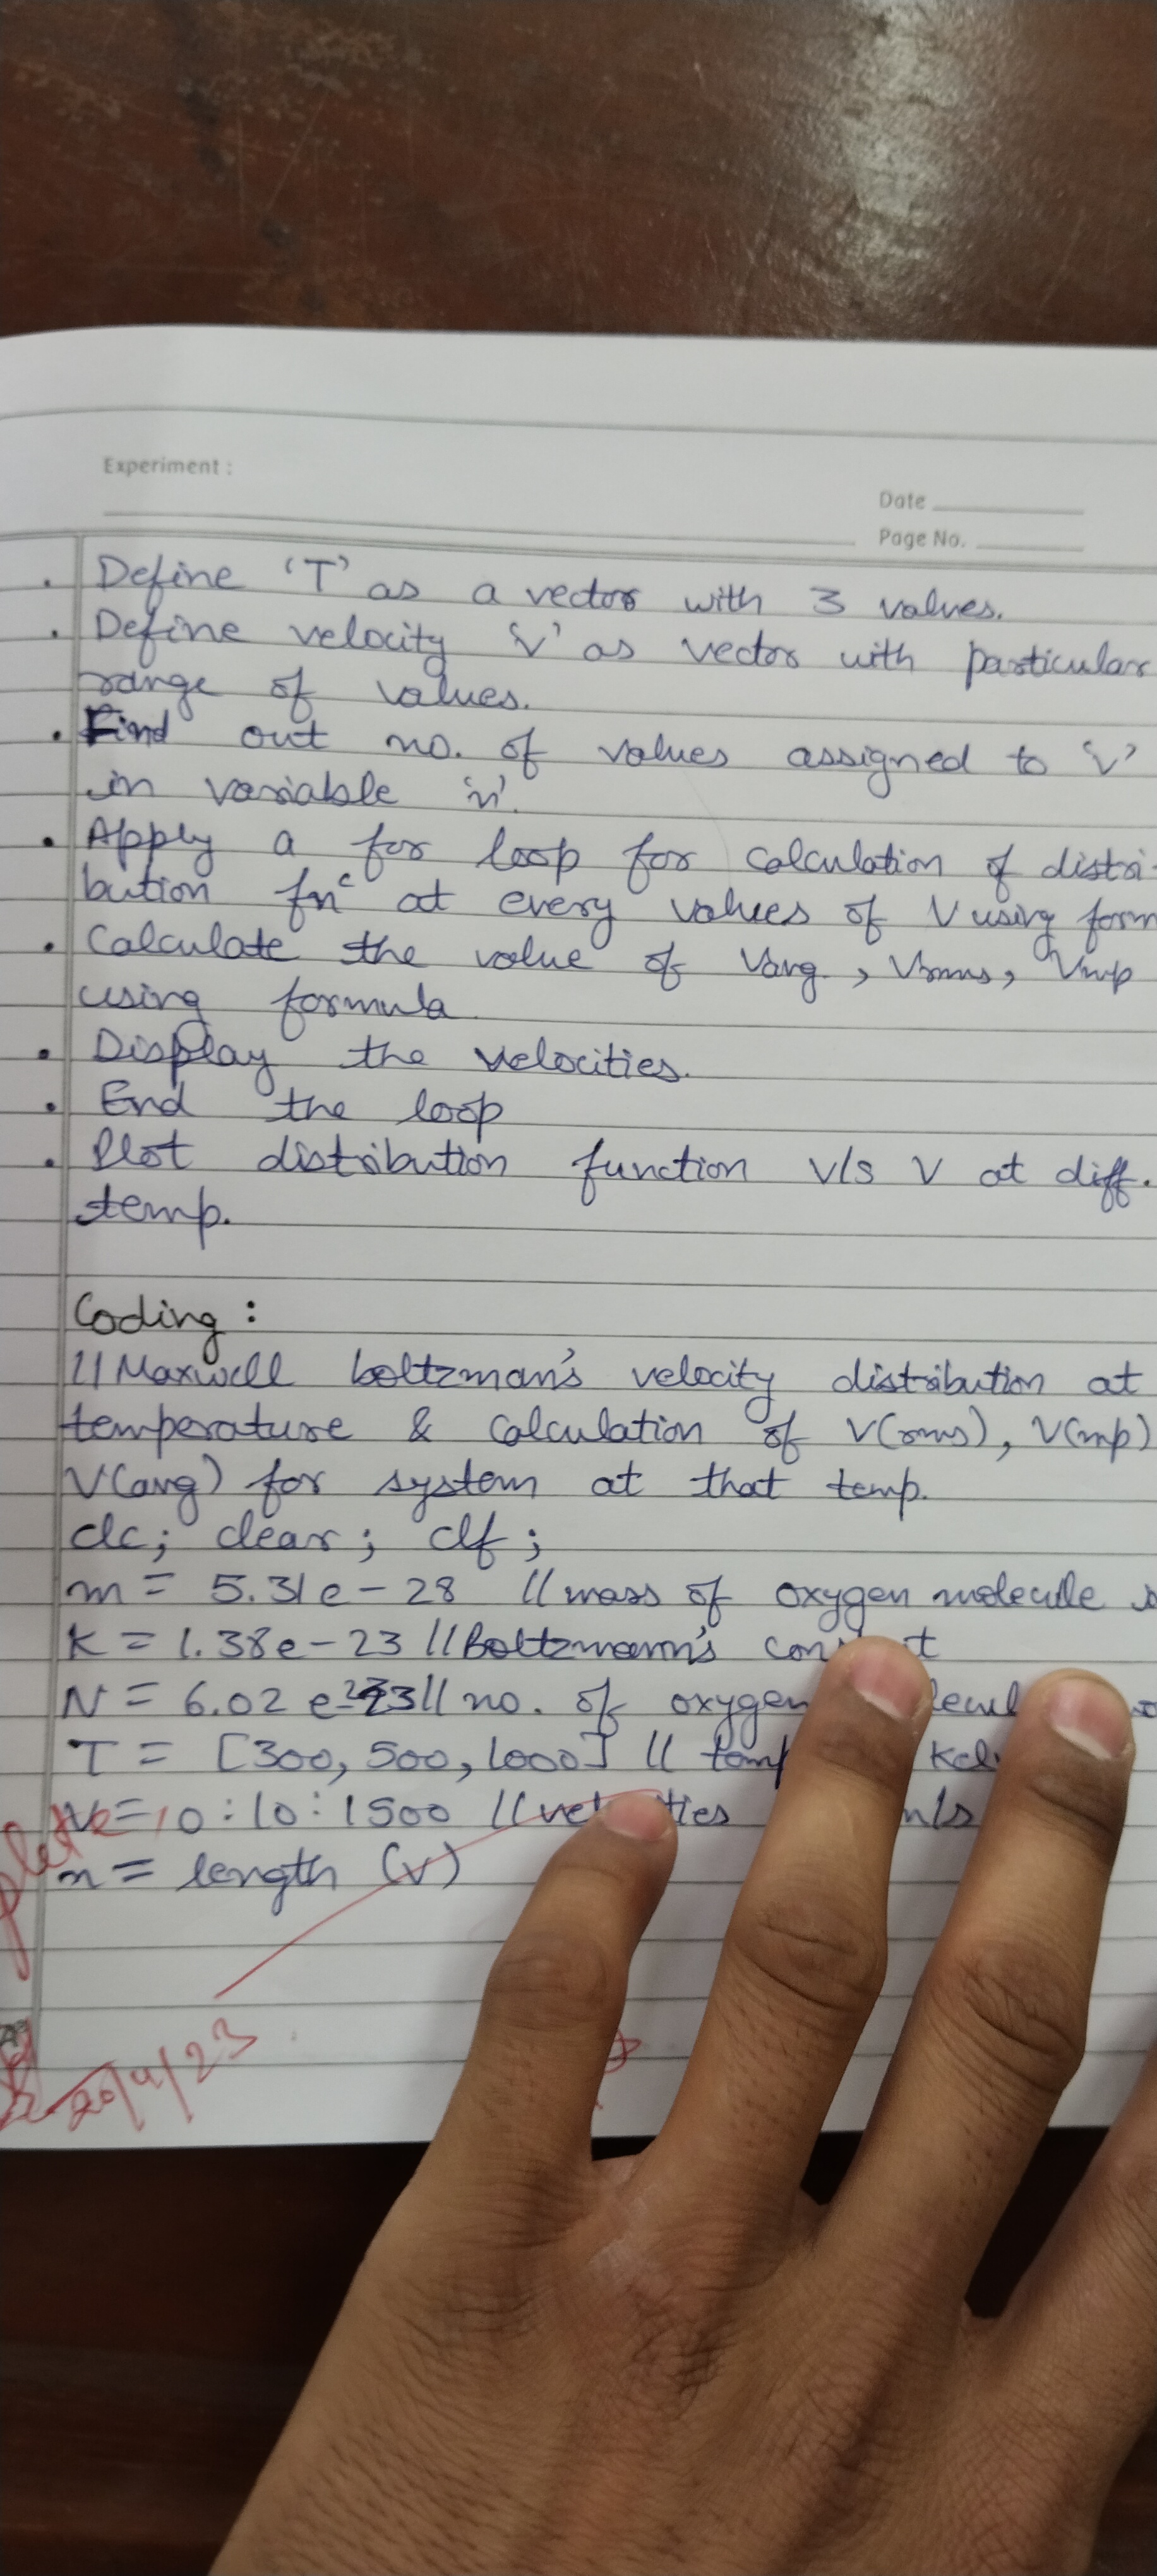 Experiment :
Date
Page No.
. Define 'T' as a vector with 3 values.
. Define velocity 'v' as vector with particular
range of values.
. Find out no. of values assigned to 'v'
in variable 'n'.
. Apply a for loop for calculation of distri-
bution fnᶜ at every values of V using form
. Calculate the value of Vavg., Vrms, Vmp
using formula
. Display the velocities.
. End the loop
. Plot distribution function v/s V at diff.
temp.
Coding :
// Maxwell boltzman's velocity distribution at
temperature & calculation of V(rms), V(mp)
V(avg) for system at that temp.
clc; clear; clf;
m = 5.31e-28 // mass of oxygen molecule
K = 1.38e-23 // Boltzmann's
N = 6.02 // no. of oxygen
T = [300, 500, 1000] //
v = 0:10:1500 //
n = length (v)
20/4/23